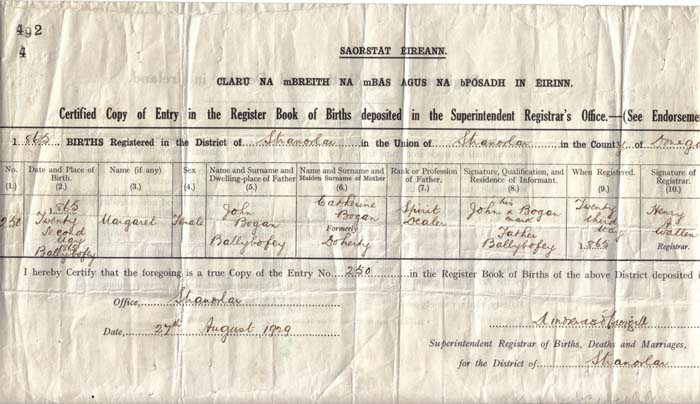 492
4
SAORSTÁT ÉIREANN.
CLARÚ NA mBREITH NA mBÁS AGUS NA bPÓSADH IN ÉIRINN.
Certified Copy of Entry in the Register Book of Births deposited in the Superintendent Registrar's Office.—(See Endorseme
1865 BIRTHS Registered in the District of Stranorlar in the Union of Stranorlar in the County of Doneg
No. (1.) Date and Place of Birth. (2.) Name (if any) (3.) Sex (4.) Name and Surname and Dwelling-place of Father (5.) Name and Surname and Maiden Surname of Mother (6.) Rank or Profession of Father. (7.) Signature, Qualification, and Residence of Informant. (8.) When Registered. (9.) Signature of Registrar. (10.)
250 1865 Twenty Second May 1865 Ballybofey Margaret Female John Bogan Ballybofey Catherine Bogan Formerly Doherty Spirit Dealer John his x mark Bogan Father Ballybofey Twenty third May 1865 Henry Registrar.
I hereby Certify that the foregoing is a true Copy of the Entry No. 250 in the Register Book of Births of the above District deposited i
Office, Stranorlar
Date, 27th August 1929
Superintendent Registrar of Births, Deaths and Marriages,
for the District of Stranorlar